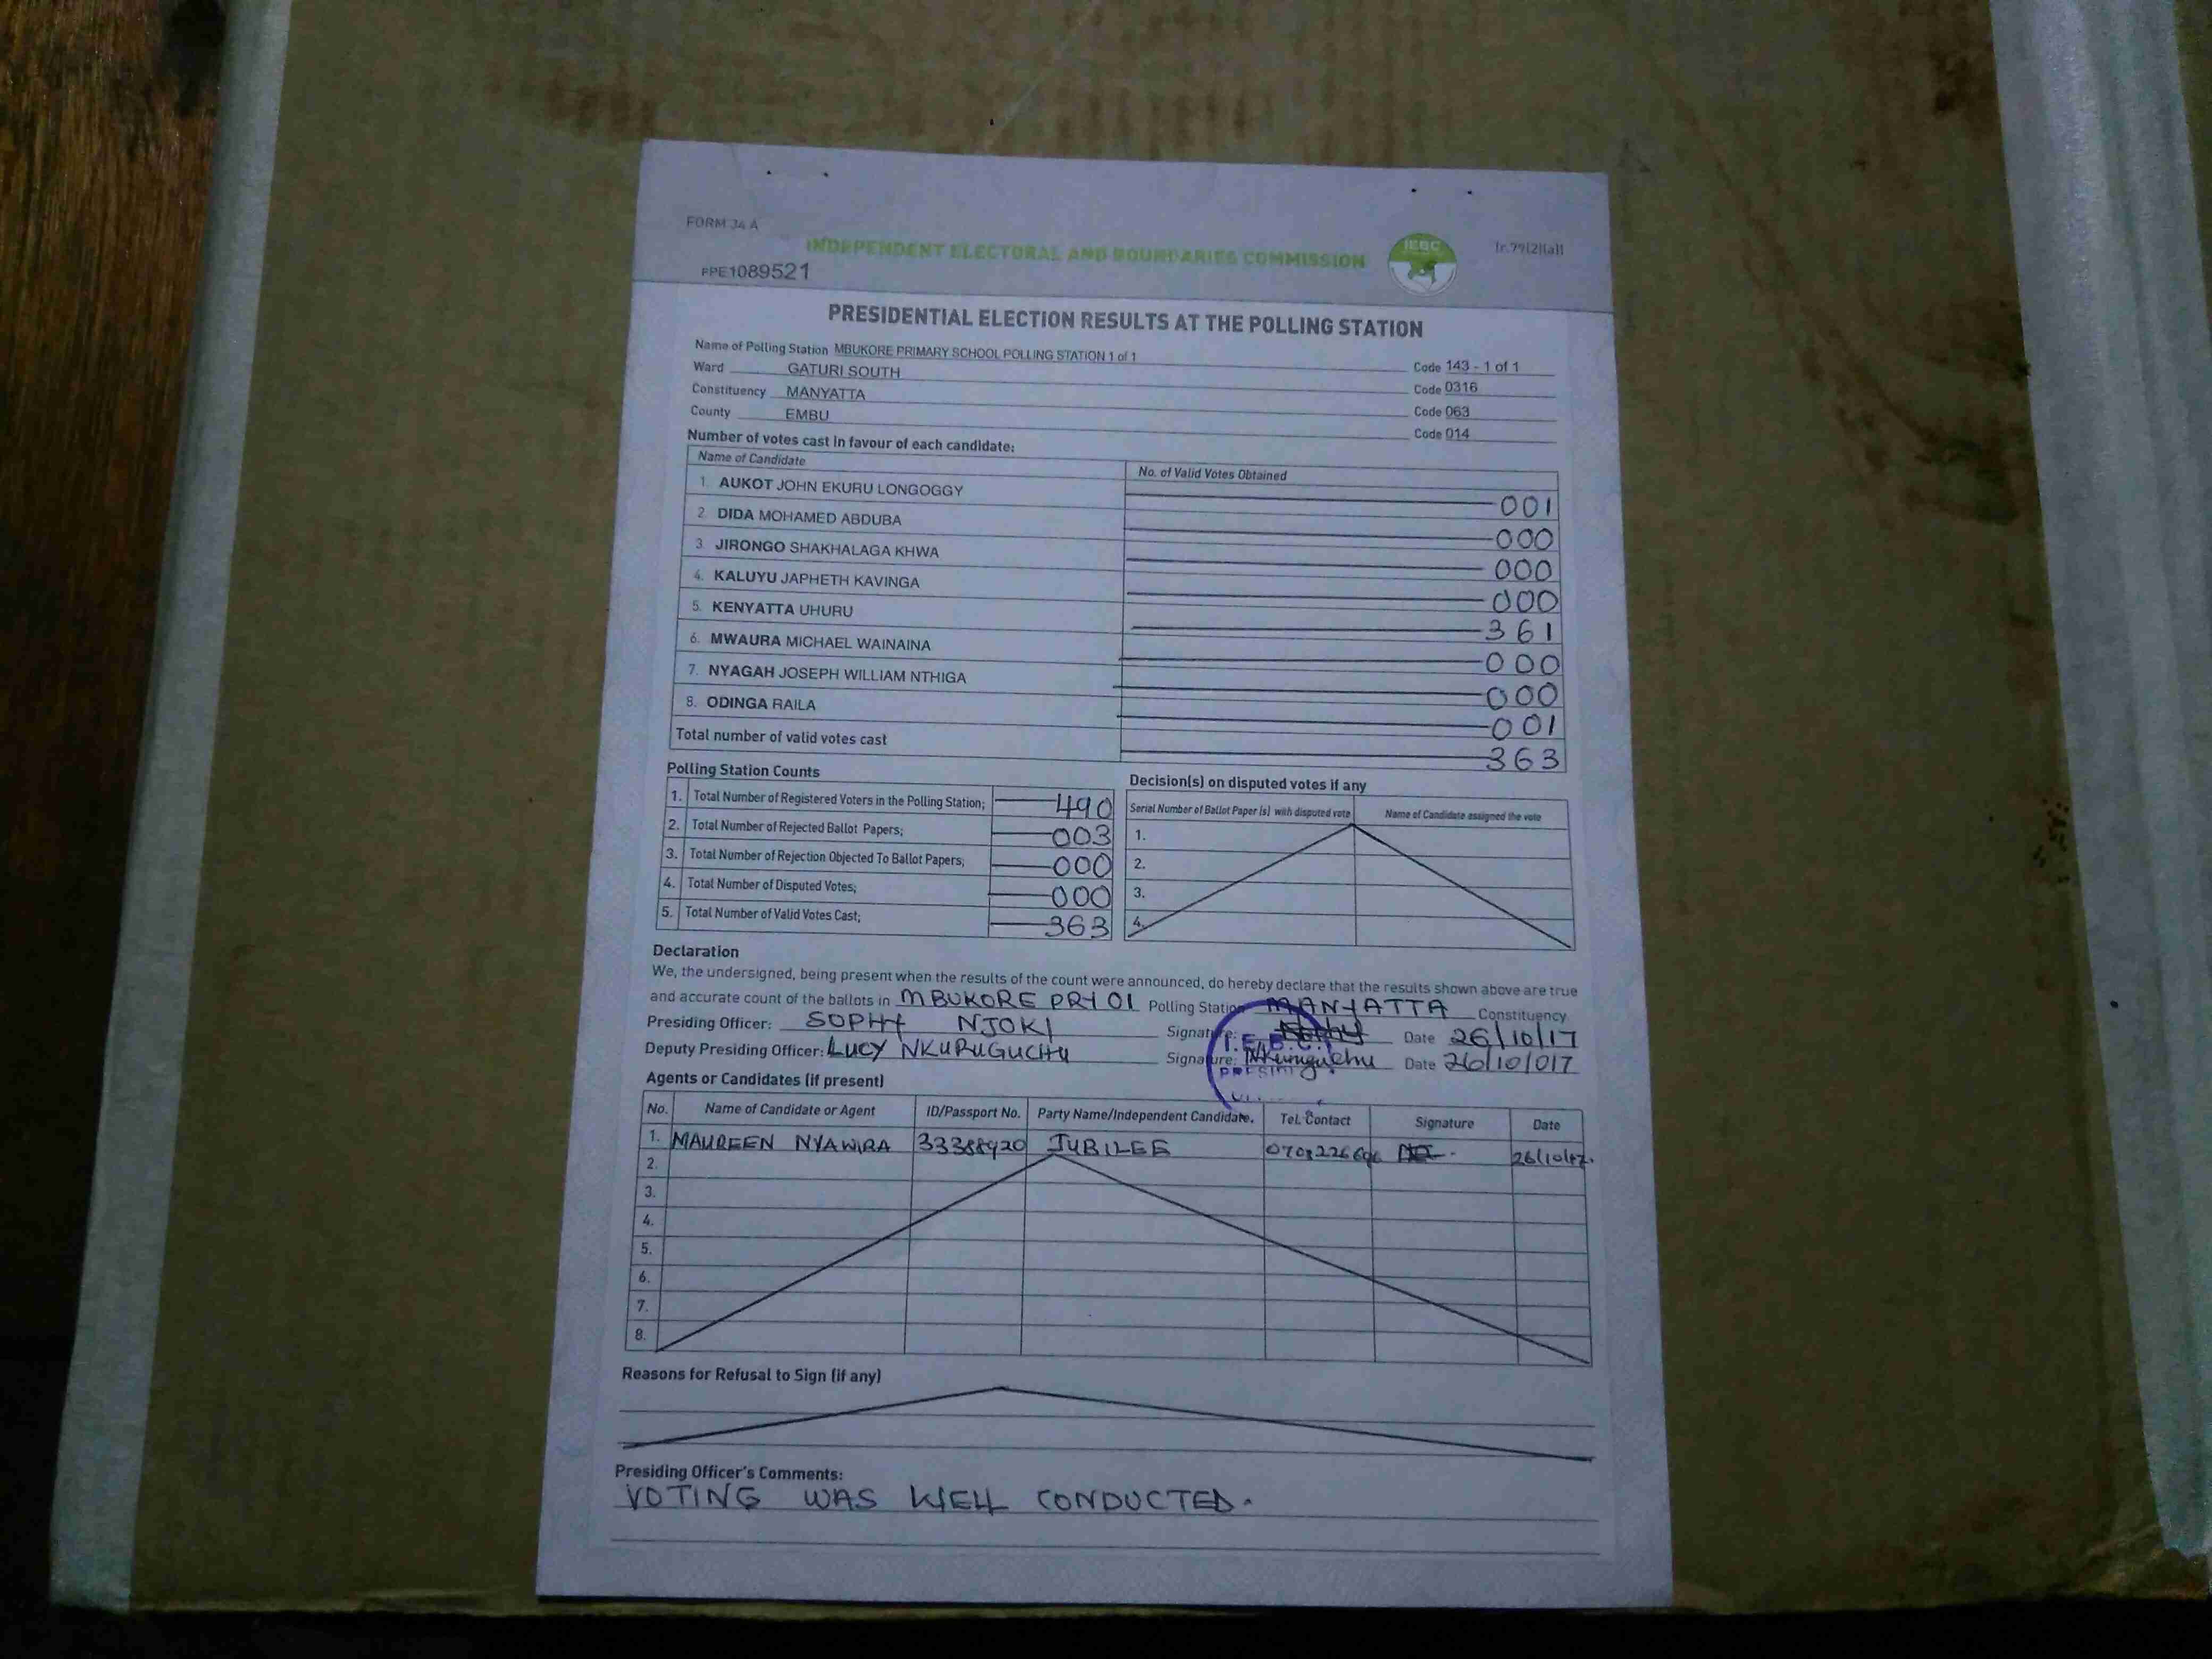 FORM 34 A
INDEPENDENT ELECTORAL AND BOUNDARIES COMMISSION
IEBC
(r.79(2)(a))
PPE1089521
PRESIDENTIAL ELECTION RESULTS AT THE POLLING STATION
Name of Polling Station MBUKORE PRIMARY SCHOOL POLLING STATION 1 of 1 Code 143 - 1 of 1
Ward GATURI SOUTH Code 0316
Constituency MANYATTA Code 063
County EMBU Code 014
Number of votes cast in favour of each candidate:
Name of Candidate No. of Valid Votes Obtained
1. AUKOT JOHN EKURU LONGOGGY 001
2. DIDA MOHAMED ABDUBA 000
3. JIRONGO SHAKHALAGA KHWA 000
4. KALUYU JAPHETH KAVINGA 000
5. KENYATTA UHURU 361
6. MWAURA MICHAEL WAINAINA 000
7. NYAGAH JOSEPH WILLIAM NTHIGA 000
8. ODINGA RAILA 001
Total number of valid votes cast 363
Polling Station Counts
1. Total Number of Registered Voters in the Polling Station; 490
2. Total Number of Rejected Ballot Papers; 003
3. Total Number of Rejection Objected To Ballot Papers; 000
4. Total Number of Disputed Votes; 000
5. Total Number of Valid Votes Cast; 363
Decision(s) on disputed votes if any
Serial Number of Ballot Paper (s) with disputed vote Name of Candidate assigned the vote
1.
2.
3.
4.
Declaration
We, the undersigned, being present when the results of the count were announced, do hereby declare that the results shown above are true
and accurate count of the ballots in MBUKORE PRY 01 Polling Station MANYATTA Constituency
Presiding Officer: SOPHY NJOKI Signature: Date 26/10/17
Deputy Presiding Officer: LUCY NKURUGUCHU Signature: Nkuruguchu Date 26/10/017
Agents or Candidates (if present)
No. Name of Candidate or Agent ID/Passport No. Party Name/Independent Candidate. Tel. Contact Signature Date
1. MAUREEN NYAWIRA 33388920 JUBILEE 26/10/17.
2.
3.
4.
5.
6.
7.
8.
Reasons for Refusal to Sign (if any)
Presiding Officer's Comments:
VOTING WAS WELL CONDUCTED.